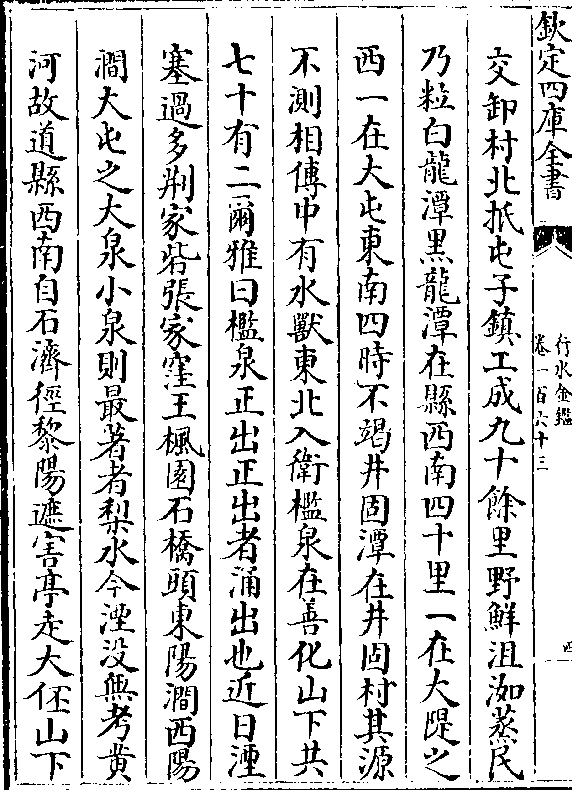 欽定四庫全書
行水金鑑
卷一百六十三
四
交卸村北抵屯子鎮工成九十餘里野鮮沮洳蒸民
乃粒白龍潭黑龍潭在縣西南四十里一在大隄之
西一在大屯東南四時不竭井固潭在井固村其源
不測相傳中有水獸東北入衛檻泉在善化山下共
七十有二爾雅曰檻泉正出正出者涌出也近日湮
塞過多荆家砦張家窪王楓園石橋頭東陽澗西陽
澗大屯之大泉小泉則最著者梨水今湮没無考黄
河故道縣西南自石濟徑黎陽遮害亭走大伾山下